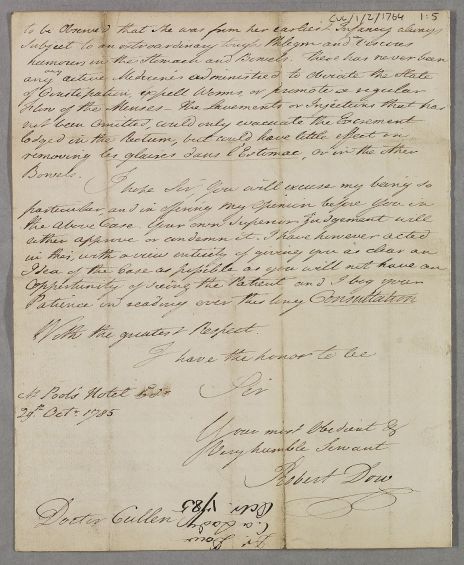 CUL/1/2/1764 1:5
to be Observed that she was from her earliest Infancy always
Subject to an extraordinary tough Phlegm and Viscous
humours in the Stomach and Bowels. There has never been
any active Medicine administred to obviate the State
of Constipation, expell Worms or promote a regular
flow of the Menses. The Lavements or Injections that has
not been Omitted, could only evacuate the Excrement
lodged in the Rectum, but could have little effect in
removing les glaires dans l'Estimac, or in the other
Bowels.
I hope Sir you will excuse my being so
particular and in offering my Opinion before you in
the above Case. Your own Superior Judgement will
either approve or condemn it. I have however acted
in this, with a view entirely of giving you as clear an
Idea of the Case as possible as you will not have an
Opportunity of seeing the Patient and I beg your
Patience in reading over this long Consultation
With the greatest Respect.
I have the honor to be
Sir
Mr Pool's Hotel
29th Octr 1785
Your most Obedient &
Very humble Servant
Robert Dow
Doctor Cullen
Dr Dow
C. a Lady
Octr. 1785